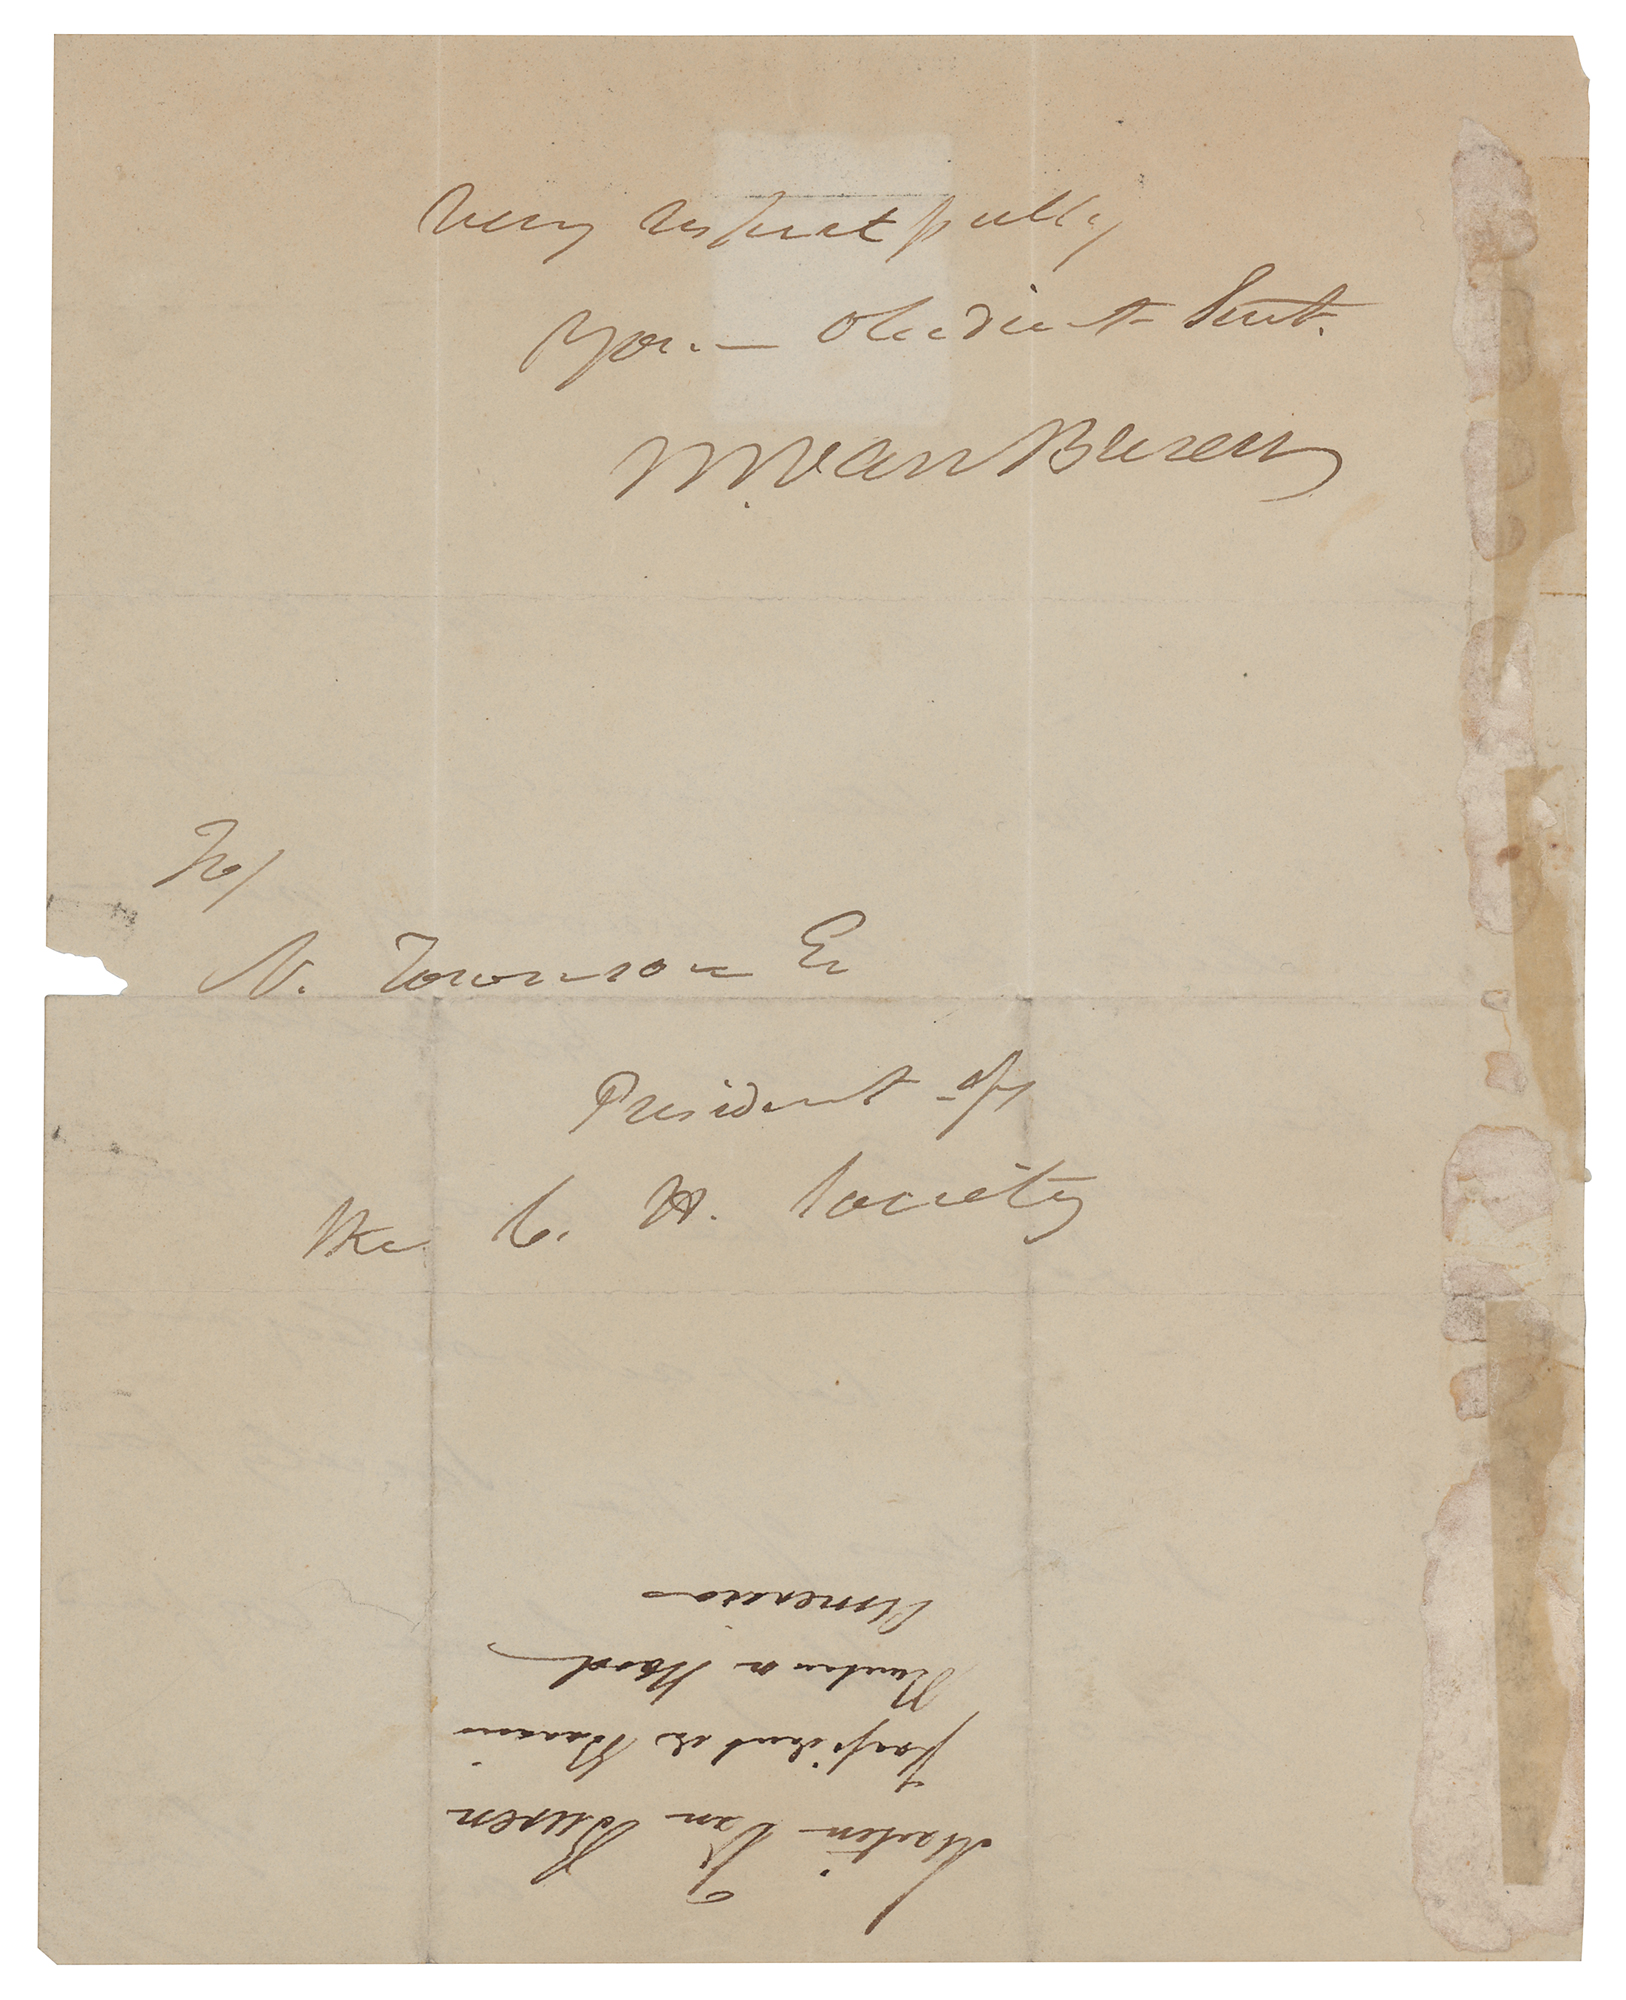 Very respectfully
Your Obedient Servt.
M. Van Buren
To/
N. Townson Er
President of
the C. H. Society
Martin Van Buren
President de
Amerika